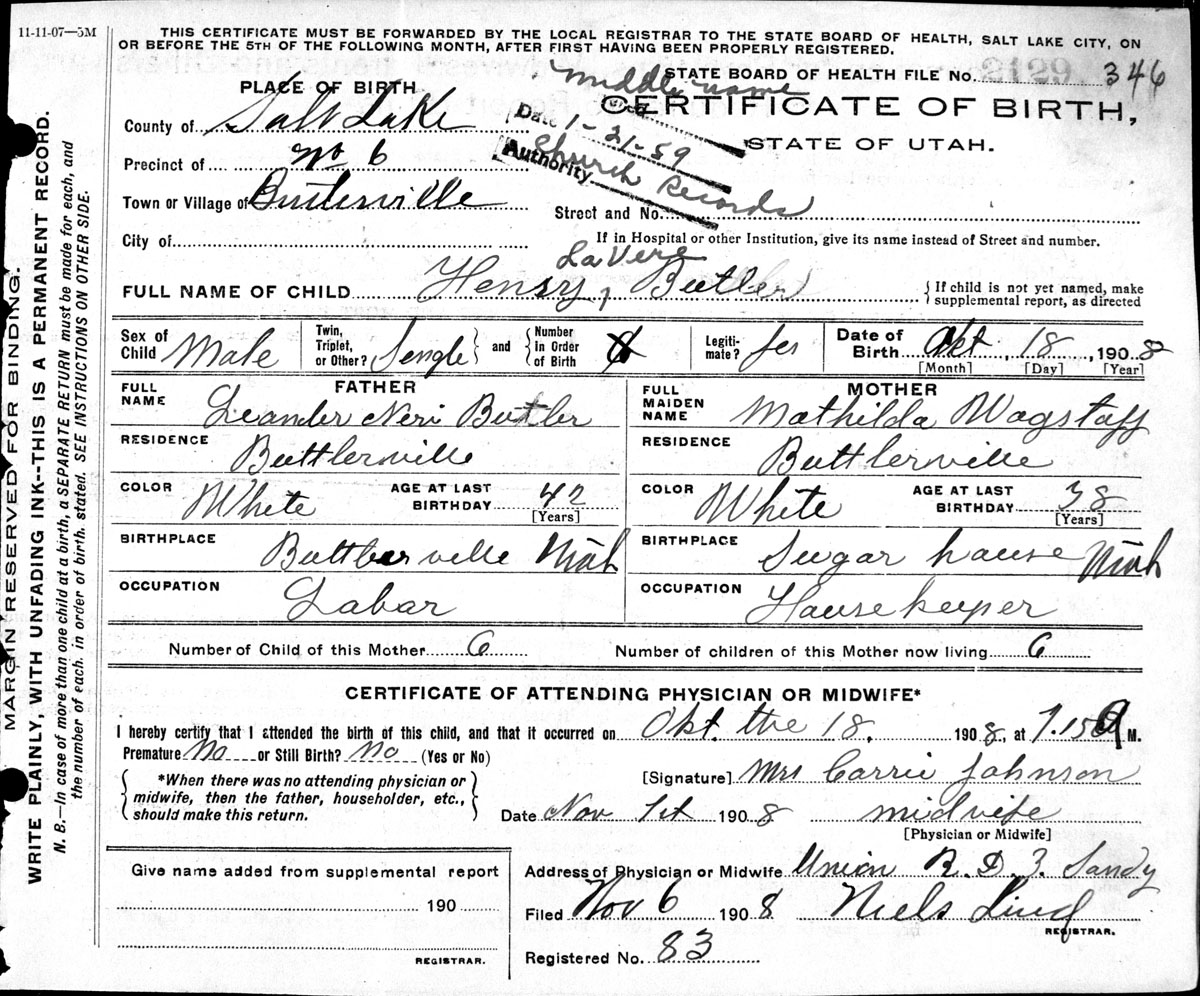 11-11-07—5M
THIS CERTIFICATE MUST BE FORWARDED BY THE LOCAL REGISTRAR TO THE STATE BOARD OF HEALTH, SALT LAKE CITY, ON
OR BEFORE THE 5TH OF THE FOLLOWING MONTH, AFTER FIRST HAVING BEEN PROPERLY REGISTERED.
STATE BOARD OF HEALTH FILE No. 2129 346
"middle name"
PLACE OF BIRTH
CERTIFICATE OF BIRTH,
STATE OF UTAH.
Date 1-21-59
Authority Church Records
County of Salt Lake
Precinct of No 6
Town or Village of Butlerville
Street and No.
City of
If in Hospital or other Institution, give its name instead of Street and number.
LaVere
FULL NAME OF CHILD Henry, Butler
{If child is not yet named, make
supplemental report, as directed
Sex of Child Male
Twin, Triplet, or Other? Sengle
and Number in Order of Birth 6
Legitimate? Jes
Date of Birth Okt, 18, 1908
[Month] [Day] [Year]
FATHER
FULL NAME Leander Neri Butler
RESIDENCE Buttlerville
COLOR White
AGE AT LAST BIRTHDAY 42
[Years]
BIRTHPLACE Buttlerville Utah
OCCUPATION Labar
MOTHER
FULL MAIDEN NAME Mathilda Wagstaff
RESIDENCE Buttlerville
COLOR White
AGE AT LAST BIRTHDAY 38
[Years]
BIRTHPLACE Sugar hause Utah
OCCUPATION Hausekeyper
Number of Child of this Mother 6
Number of children of this Mother now living 6
CERTIFICATE OF ATTENDING PHYSICIAN OR MIDWIFE*
I hereby certify that I attended the birth of this child, and that it occurred on Okt. the 18. 1908, at 7.15 A M.
Premature No or Still Birth? No (Yes or No)
{*When there was no attending physician or
midwife, then the father, householder, etc.,
should make this return.}
[Signature] Mrs Carrie Johnson
Date Nov 1st 1908
midvife
[Physician or Midwife]
Give name added from supplemental report
190
REGISTRAR.
Address of Physician or Midwife Union R. D. 3. Sandy
Filed Nov 6 1908 Niels Lind
REGISTRAR.
Registered No. 83
MARGIN RESERVED FOR BINDING.
WRITE PLAINLY, WITH UNFADING INK--THIS IS A PERMANENT RECORD.
N. B.—In case of more than one child at a birth, a SEPARATE RETURN must be made for each, and
the number of each, in order of birth, stated. SEE INSTRUCTIONS ON OTHER SIDE.